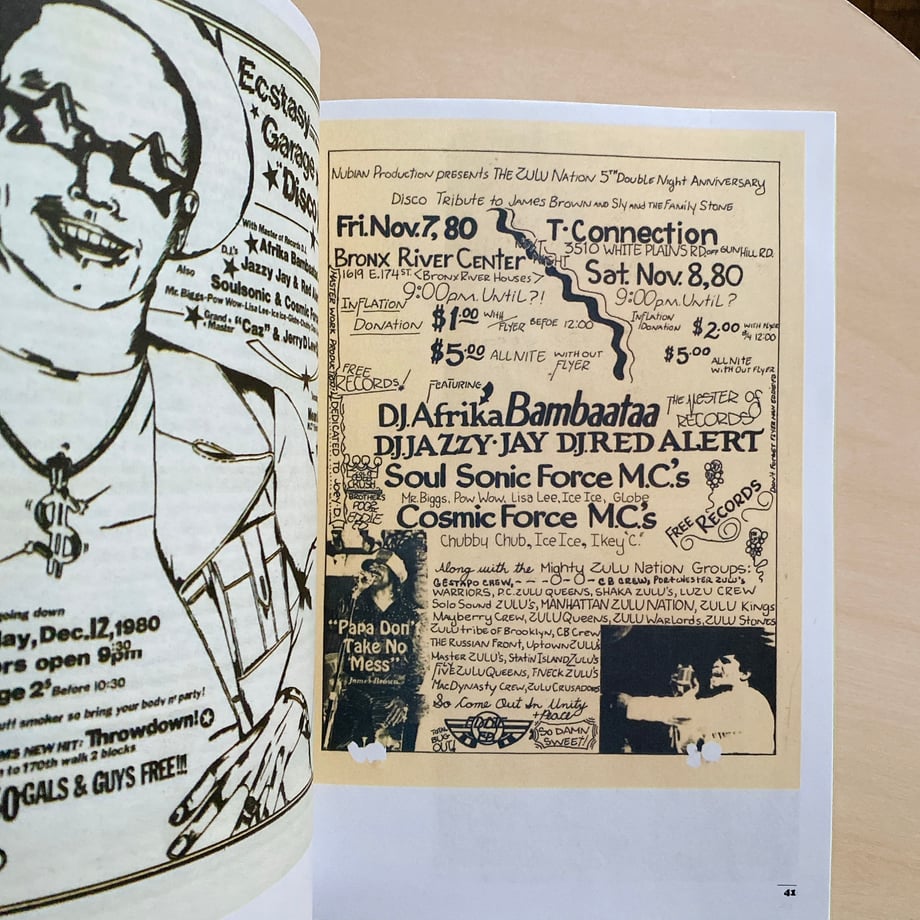 Ecstasy
Garage
"Disco
With Master of Records D.J.
Afrika Bambaataa
D.J's
Jazzy Jay & Red
Also
Soulsonic & Cosmic
Mr. Biggs-Pow Wow-Lisa Lee-Ice Ice-Globe
Grand Master "Caz" & Jerry D
going down
Dec.12,1980
open 9:30pm
2⁵ Before 10:30
smoker so bring your body n' party!
NEW HIT: Throwdown!
to 170th walk 2 blocks
GALS & GUYS FREE!!!
Nubian Production presents THE ZULU NATION 5TH Double Night ANNIVERSARY
Disco Tribute to James Brown AND Sly and THE FAMILY STONE
Fri.Nov.7,80
T-Connection
NEXT NIGHT
3510 WHITE PLAINS RD. OFF GUN HILL RD.
BRONX RIVER CENTER
Sat. Nov. 8,80
1619 E.174 ST. <BRONX RIVER HOUSES>
9:00pm. Until?!
9:00pm. Until?
INFLATION DONATION
$1.00 WITH FLYER BEFOE 12:00
INFLATION DONATION
$2.00 WITH FLYER B/4 12:00
$5.00 ALL NITE WITH OUT FLYER
$5.00 ALL NITE WITH OUT FLYER
FREE RECORDS!
FEATURING
D.J. Afrika Bambaataa
THE MASTER OF RECORDS
D.J.JAZZY·JAY D.J.RED ALERT
Soul Sonic Force M.C.'s
Mr. Biggs, Pow Wow, Lisa Lee, Ice Ice, Globe
Cosmic Force M.C.'s
Chubby Chub, Ice Ice, Ikey "C."
FREE RECORDS
BROTHER'S
Along with the Mighty ZULU NATION GROUPS:
GESTAPO CREW, - - -O-O- - CB CREW, PORTCHESTER ZULU'S
WARRIORS, P.C. ZULU QUEENS, SHAKA ZULU'S, LUZU CREW
Solo Sound ZULU'S, MANHATTAN ZULU NATION, ZULU Kings
Mayberry Crew, ZULU Queens, ZULU WARLORDS, ZULU STONES
ZULU tribe of Brooklyn, CB Crew
THE RUSSIAN FRONT, Uptown ZULU'S
Master ZULU'S, Statin Island ZULU'S
FLY FIVE ZULU QUEENS, FIVECK ZULU'S
MacDynasty Crew, ZULU CRUSADORS
So Come Out In Unity
+ Peace
"Papa Don't
Take No
Mess"
James Brown
TOTAL BUG OUT!
SO DAMN SWEET!
41